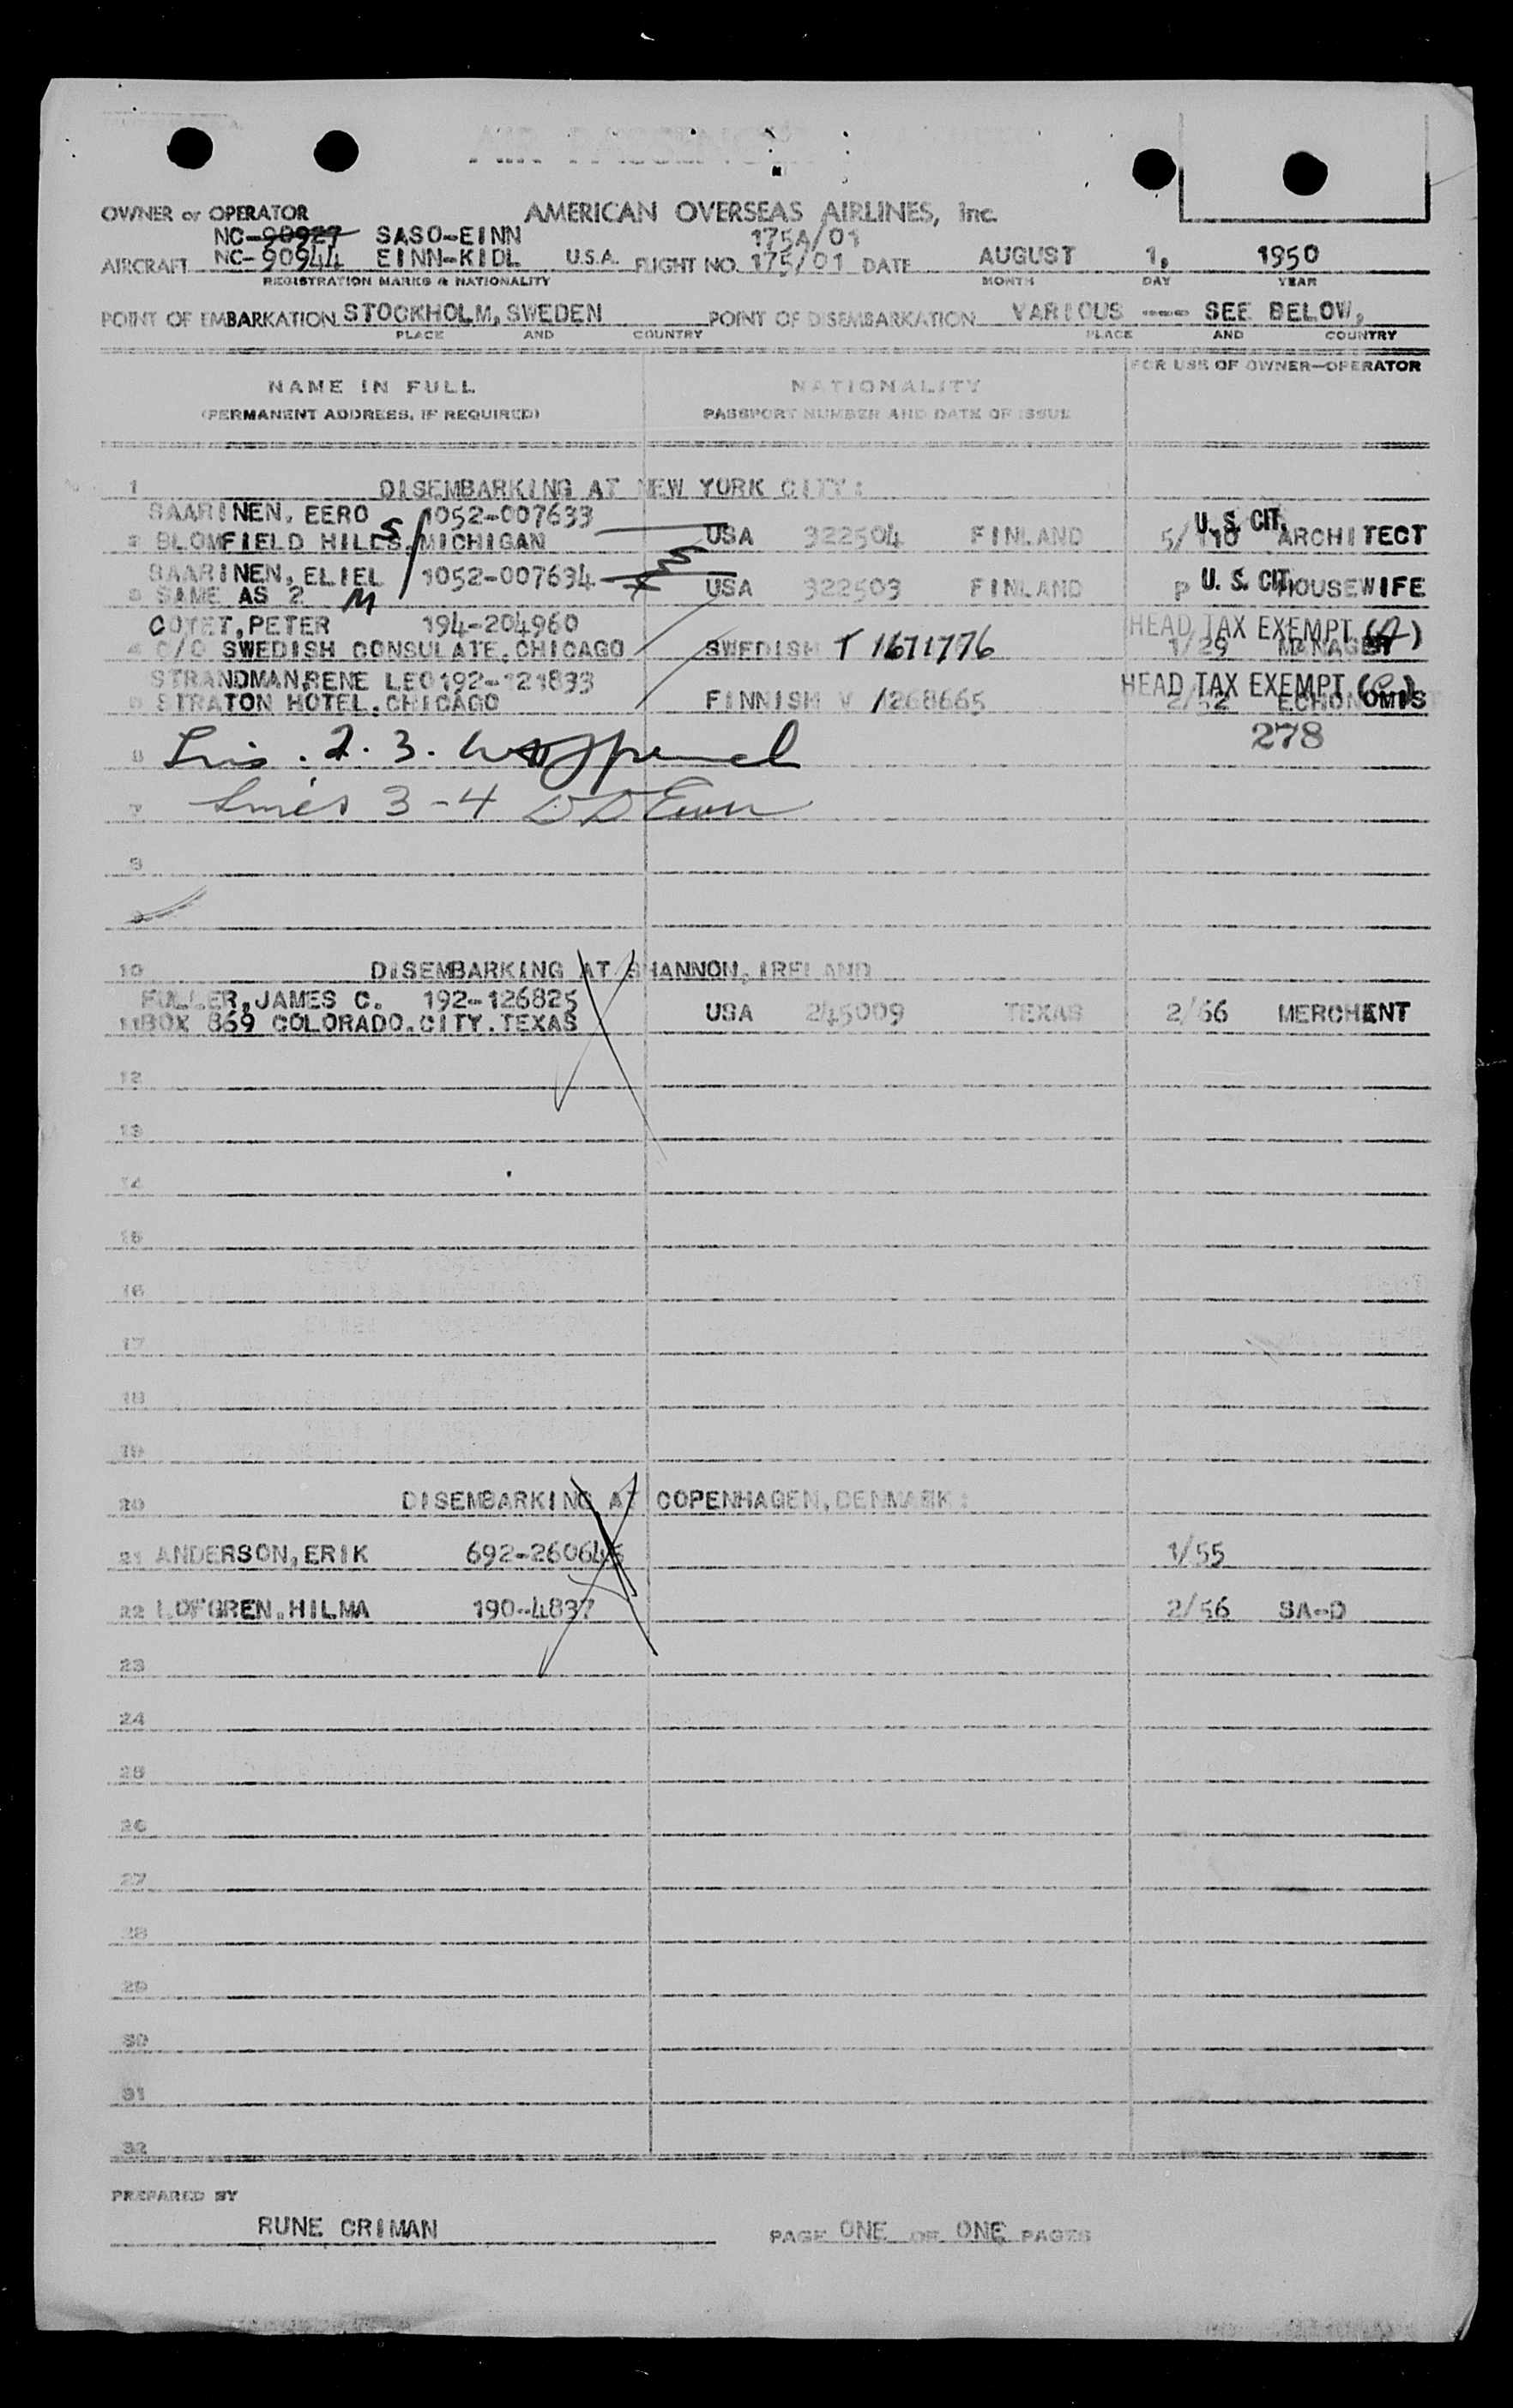 OWNER or OPERATOR AMERICAN OVERSEAS AIRLINES, Inc.
NC-90927 SASO-EINN 175A/01
AIRCRAFT NC-90944 EINN-KIDL U.S.A. FLIGHT NO. 175/01 DATE AUGUST 1, 1950
REGISTRATION MARKS & NATIONALITY MONTH DAY YEAR
POINT OF EMBARKATION STOCKHOLM, SWEDEN POINT OF DISEMBARKATION VARIOUS ---- SEE BELOW,
PLACE AND COUNTRY PLACE AND COUNTRY
NAME IN FULL NATIONALITY FOR USE OF OWNER—OPERATOR
(PERMANENT ADDRESS, IF REQUIRED) PASSPORT NUMBER AND DATE OF ISSUE
1 DISEMBARKING AT NEW YORK CITY:
SAARINEN, EERO S 1052-007633 U. S. CIT.
2 BLOMFIELD HILLS, MICHIGAN USA 322504 FINLAND 5/110 ARCHITECT
SAARINEN, ELIEL 1052-007634 U. S. CIT.
3 SAME AS 2 M USA 322503 FINLAND P HOUSEWIFE
COYET, PETER 194-204960 HEAD TAX EXEMPT
4 C/O SWEDISH CONSULATE, CHICAGO SWEDISH T 1671776 1/29 MANAGER
STRANDMAN, RENE LEO 192-121833 HEAD TAX EXEMPT
5 STRATON HOTEL, CHICAGO FINNISH V 1268665 2/52 ECHONOMIS
278
6 2. 3.
7 Lines 3-4
8
9
10 DISEMBARKING AT SHANNON, IRELAND
FULLER, JAMES C. 192-126825
11 BOX 869 COLORADO.CITY.TEXAS USA 245009 TEXAS 2/66 MERCHANT
12
13
14
15
16
17
18
19
20 DISEMBARKING AT COPENHAGEN, DENMARK:
21 ANDERSON, ERIK 692-260645 1/55
22 LOFGREN, HILMA 190-4837 2/56 SA-D
23
24
25
26
27
28
29
30
31
32
PREPARED BY
RUNE CRIMAN PAGE ONE OF ONE PAGES